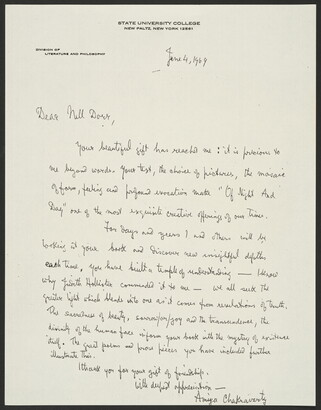 STATE UNIVERSITY COLLEGE
NEW PALTZ, NEW YORK 12561
DIVISION OF
LITERATURE AND PHILOSOPHY
June 4, 1969
Dear Nell Dorr,
Your beautiful gift has reached me: it is precious to
me beyond words. Your text, the choice of pictures, the mosaic
of form, feeling and profound evocation make "Of Night And
Day" one of the most exquisite creative offerings of our times.
For days and years I and others will be
looking at your book and discover new insightful depths
each time. You have built a temple of understanding — I know
why Judith Hollister commended it to me — we all seek the
greater light which blends into one as it comes from revelations of truth.
The sacredness of beauty, sorrow/joy and the transcendence, the
divinity of the human face inform your book with the mystery of existence
itself. The great poems and prose pieces you have included further
illustrate this.
I thank you for your gift of friendship.
With deepest appreciation —
Amiya Chakravarty